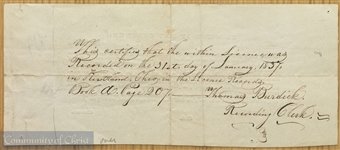 This certifies that the within License was
Recorded on the 31st day of January, 1837.
in Kirtland Ohio, in the License Records
Book A. Page 207
Thomas Burdick.
Recording Clerk.
Community of Christ